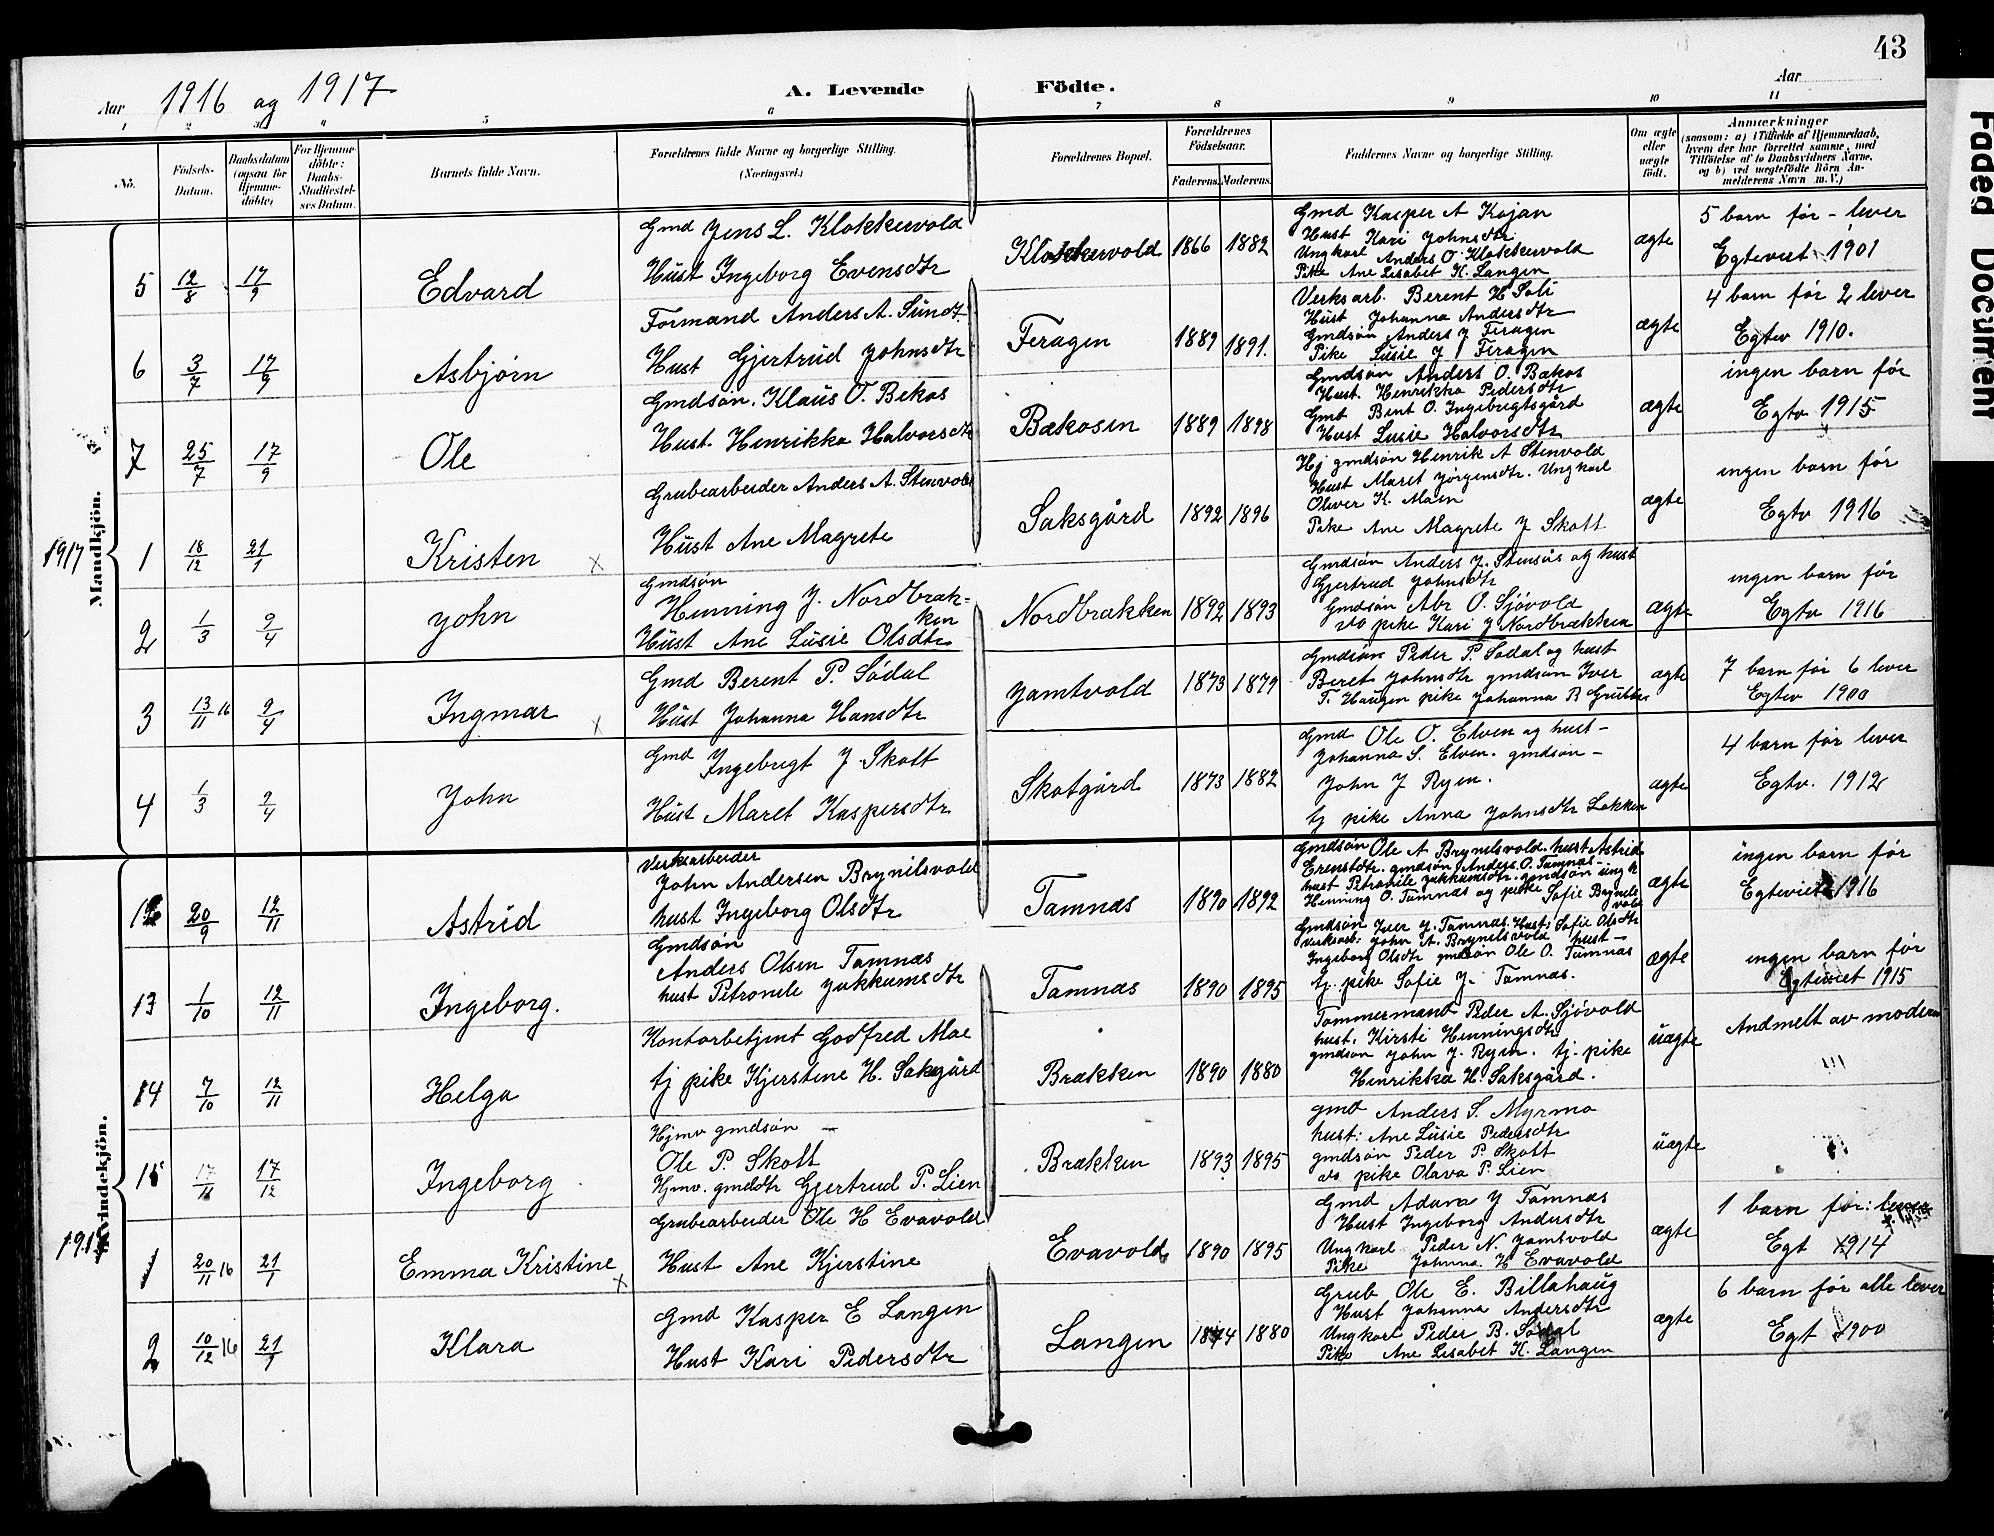 43
Aar 1916 og 1917
A. Levende Födte.
Aar
1 2 3 4 5 6 7 8 9 10 11
No.
Födsels-Datum.
Daabsdatum (ogsaa for Hjemme-döbte)
For Hjemme-döbte: Daabs-Stadfæstel-ses Datum.
Barnets fulde Navn.
Forældrenes fulde Navne og borgerlige Stilling. (Næringsvei.)
Forældrenes Bopæl.
Forældrenes Födselsaar.
Faderens. Moderens.
Faddernes Navne og borgerlige Stilling.
Om ægte eller uægte födt.
Anmærkninger
(saasom: a) i Tilfælde af Hjemmedaab, hvem der har forrettet samme, med Tilföielse af to Daabsvidners Navne, og b) ved uægtefödte Börn An-melderens Navn m. V.)
Mandkjön.
5 12/8 17/9 Edvard
Gmd Jens L. Klokkervold
Hust Ingeborg Evensdtr
Klokkervold 1866 1882
Gmd Kasper A Kojan
Hust Kari Johnsdtr
Ungkarl Anders O Klokkervold
Pike Ane Lisabet K. Langen
ægte
5 barn før - lever
Egteviet 1901
6 3/7 17/9 Asbjørn
Formand Anders A. Sundt
Hust Gjertrud Johnsdtr
Feragen 1889 1891.
Verksarb. Berent H Soli
Hust Johanna Andersdtr
Gmdsøn Anders J Feragen
Pike Lusie J Feragen
ægte
4 barn før 2 lever
Egtev 1910.
7 25/7 17/9 Ole
Gmdsøn. Klaus O. Bekos
Hust. Henrikka Halvorsdtr
Bækosen 1889 1898
Gmdsøn Anders O. Bækos
Hust. Henrikka Pedersdtr
Gmd Bent O. Ingebrigtsgård
Hust Lusie Halvorsdtr
ægte
ingen barn før
Egtv 1915
1917
1 18/12 21/1 Kristen x
Grubearbeider Anders A. Stenvold
Hust Ane Magrete
Saksgård 1892 1896
Hj gmdsøn Henrik A Stenvold
Hust Maret Jørgensdtr. Ungkarl
Oliver K. Moen
Pike Ane Magrete J Skott
ægte
ingen barn før
Egtv 1916
2 1/3 9/4 John
Gmdsøn
Henning J. Nordbræk-
ken
Hust Ane Lusie Olsdtr
Nordbrækken 1892 1893
Gmdsøn Anders J. Stensås og hust
Gjertrud Johnsdtr
Gmdsøn Abr O. Sjøvold
vo pike Kari J Nordbrækken
ægte
ingen barn før
Egtv 1916
3 13/11 16 9/4 Ingmar x
Gmd Berent P. Sødal
Hust Johanna Hansdtr
Jamtvold 1873 1879
Gmdsøn Peder P. Sødal og hust
Beret Johnsdtr gmdsøn Iver
T. Haugen pike Johanna B
ægte
7 barn før 6 lever
Egtev 1900
4 1/3 9/4 John
Gmd Ingebrigt J Skott
Hust Maret Kaspersdtr
Skotgård 1873 1882
Gmd Ole O. Elven og hust -
Johanna S. Elven. gmdsøn -
John J Ryen.
tj pike Anna Johnsdtr Løkken
ægte
4 barn før lever
Egtv. 1912
Kvindekjön.
12 20/9 12/11 Astrid
Verksarbeider
John Andersen Brynilsvold
hust Ingeborg Olsdtr
Tamnæs 1890 1892
Gmdsøn Ole A Brynilsvold. hust Astrid
Erenstdtr. gmdsøn Anders O. Tamnæs -
hust Petronele Jukkumsdtr. gmdsøn ungk
Henning O. Tamnæs og pike Sofie Brynils
vold
ægte
ingen barn før
Egteviet 1916
13 1/10 12/11 Ingeborg.
Gmdsøn
Anders Olsen Tamnæs
hust Petronele Jukkumsdtr
Tamnæs 1890 1895
Gmdsøn Iver J. Tamnæs Hust: Sofie Olsdtr
Verksarb: John A. Brynilsvold hust -
Ingeborg Olsdtr gmdsøn Ole O. Tamnæs
tj. pike Sofie J. Tamnæs.
ægte
ingen barn før
Egteviet 1915
14 7/10 12/11 Helga
Kontorbetjent Godfred Moe
tj pike Kjerstene H. Saksgård
Brækken 1890 1880
Tømmermand Peder A. Sjøvold
hust. Kirsti Henningsdtr
gmdsøn John J. Ryen. tj. pike
Henrikka H. Saksgård.
uægte
Andmelt av moderen
15 17/12 Ingeborg
Hjmv gmdsøn -
Ole P. Skott
Hjmv. gmddtr Gjertrud P. Lien
Brækken 1893 1895
gmd Anders S. Myrmo
hust: Ane Lusie Pedersdtr
gmdsøn Peder P. Skott
vo pike Olava P. Lien
uægte
1 20/11 16 21/1 Emma Kristine x
Grubearbeider Ole H Evavold
Hust Ane Kjerstine
Evavold 1890 1895
Gmd Adam J Tamnæs
Hust Ingeborg Andersdtr
Ungkarl Peder N. Jamtvold
Pike Johanna H Evavold
ægte
1 barn før: lever
Egt 1914
2 10/12 16 21/1 Klara
Gmd Kasper E Langen
Hust Kari Pedersdtr
Langen 1874 1880
Grub Ole E. Billahaug
Hust Johanna Andersdtr
Ungkarl Peder B. Sødal
Pike Ane Lisabet K. Langen
ægte
6 barn før alle lever
Egt 1900
Faded Document